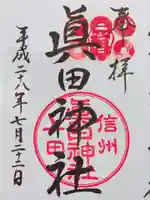 奉拝
眞田神社
平成二十八年七月二十二日
信州
上田
眞田神社